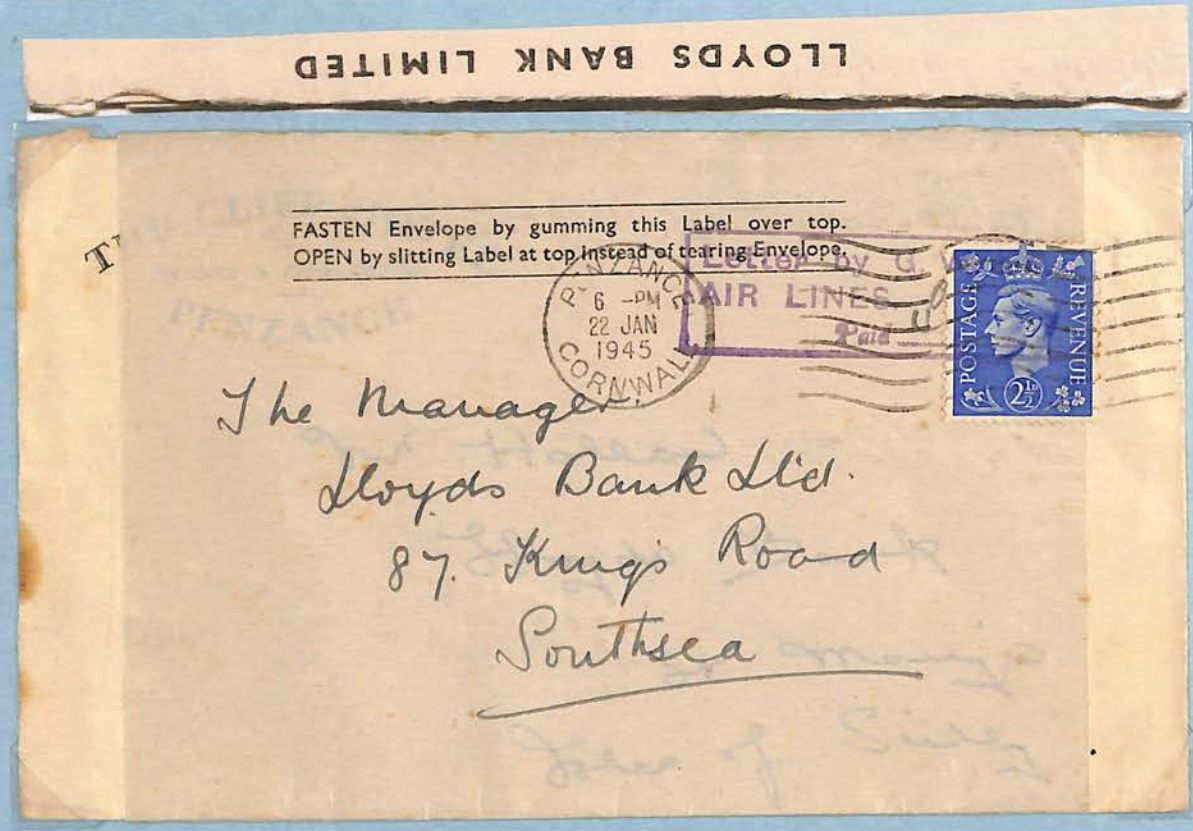 LLOYDS BANK LIMITED
FASTEN Envelope by gumming this Label over top.
OPEN by slitting Label at top instead of tearing Envelope.
Letter by G. W.
AIR LINES
Paid
PENZANCE
6 -PM
22 JAN
1945
CORNWALL
POSTAGE REVENUE
2½D
PENZANCE
The Manager,
Lloyds Bank Ltd.
87. Kings Road
Southsea